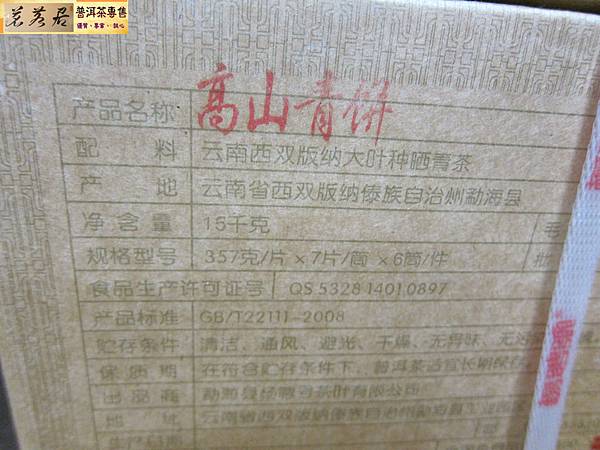 茗茶居 普洱茶專售
優質·專業·誠心
产品名称 高山青饼
配料 云南西双版纳大叶种晒青茶
产地 云南省西双版纳傣族自治州勐海县
净含量 15千克 毛
规格型号 357克/片×7片/筒×6筒/件 批
食品生产许可证号 QS 5328 1401 0897
产品标准 GB/T22111-2008
贮存条件 清洁、通风、避光、干燥、无异味、无污
保质期 在符合贮存条件下，普洱茶适宜长期保存
出品商 勐海县杨聘号茶叶有限公司
地址 云南省西双版纳傣族自治州勐海县工业园区
生产日期